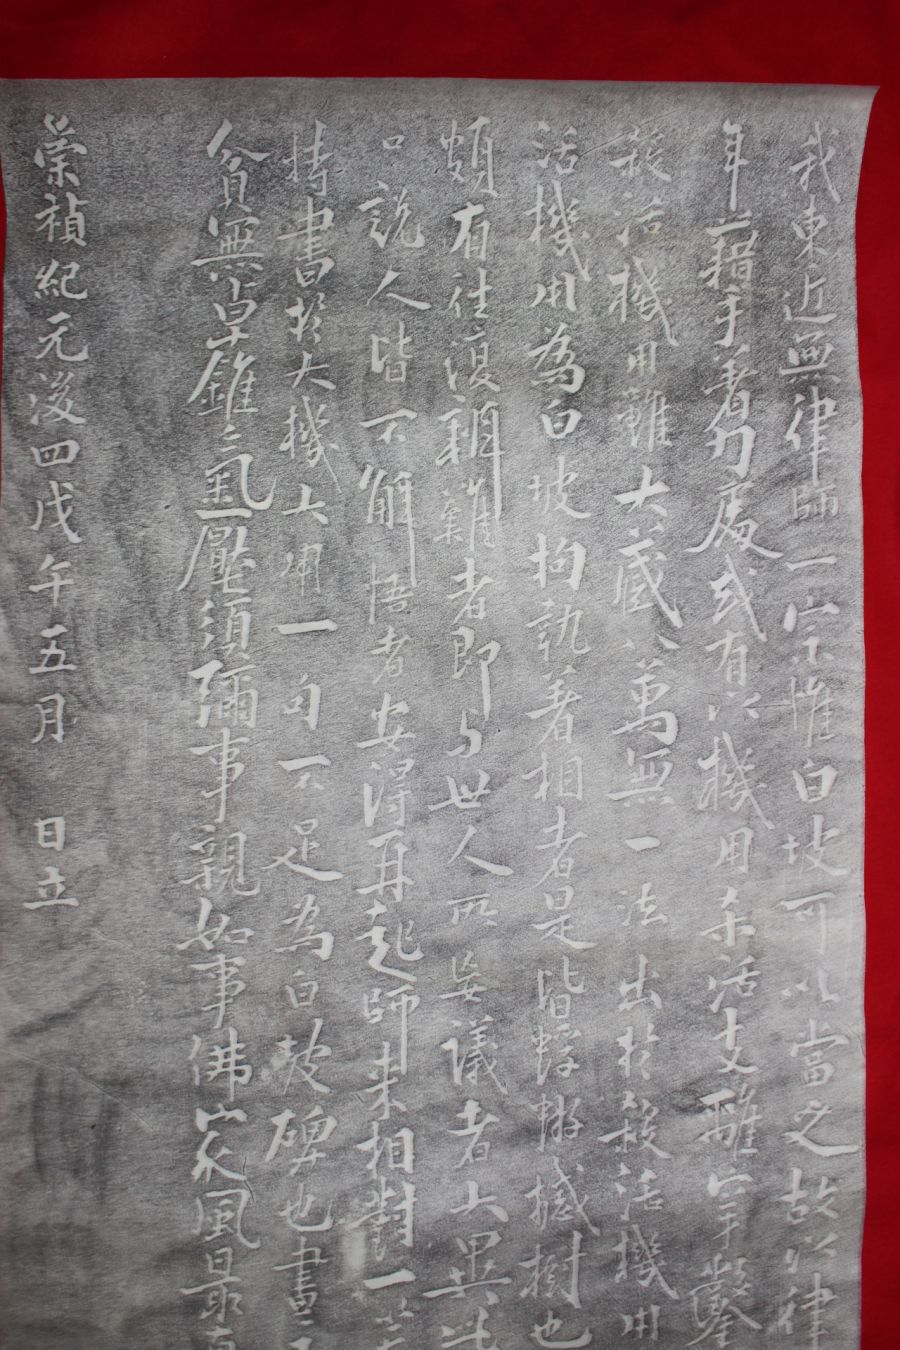 我東近無律師一宗惟白坡可以當之故以律
年藉手著力處或有以機用殺活支離穿鑿
殺活機用雖大藏八萬無一法出於殺活機用
活機用為白坡拘執著相者是皆蜉蝣撼樹也
頗有往復辨難者即与世人所妄議者大異此
口說人皆不解悟者安得再起師來相對一
特書於大機大用一句不足為白坡碑也書
貧無卓錐氣壓須彌事親如事佛家風最
崇禎紀元後四戊午五月 日立